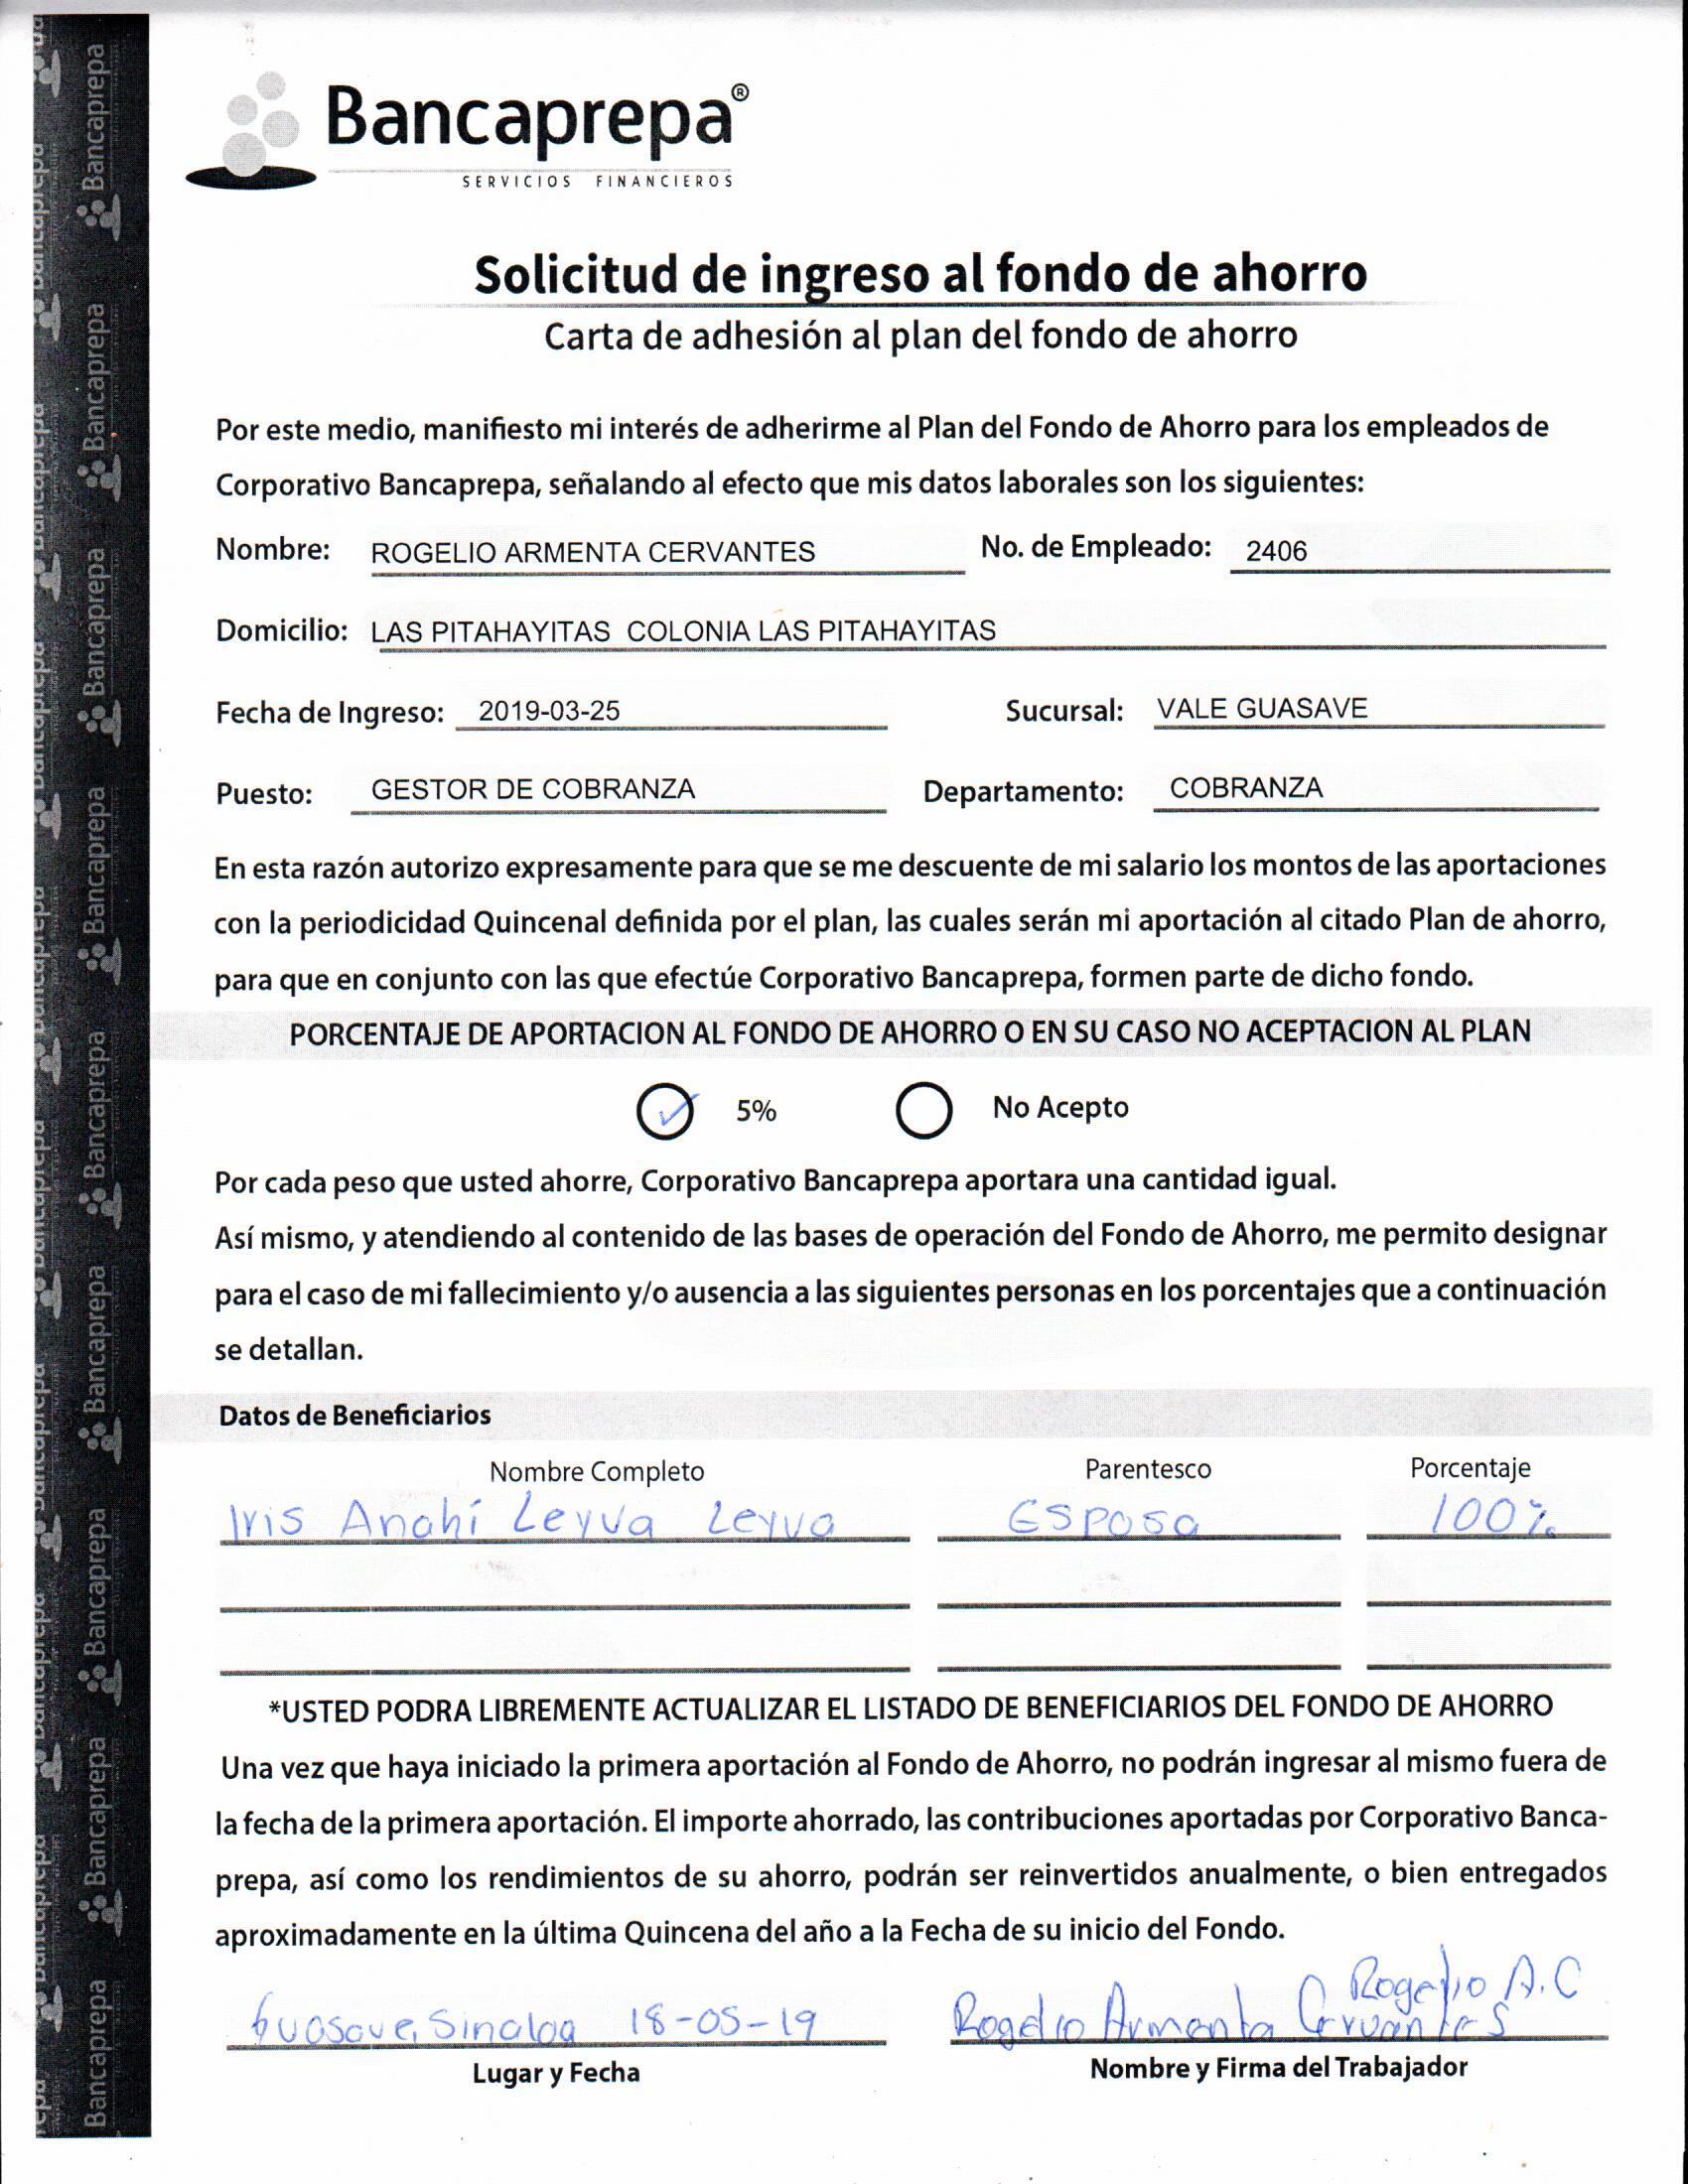 Bancaprepa®
SERVICIOS FINANCIEROS
Solicitud de ingreso al fondo de ahorro
Carta de adhesión al plan del fondo de ahorro
Por este medio, manifiesto mi interés de adherirme al Plan del Fondo de Ahorro para los empleados de
Corporativo Bancaprepa, señalando al efecto que mis datos laborales son los siguientes:
Nombre: ROGELIO ARMENTA CERVANTES No. de Empleado: 2406
Domicilio: LAS PITAHAYITAS COLONIA LAS PITAHAYITAS
Fecha de Ingreso: 2019-03-25 Sucursal: VALE GUASAVE
Puesto: GESTOR DE COBRANZA Departamento: COBRANZA
En esta razón autorizo expresamente para que se me descuente de mi salario los montos de las aportaciones
con la periodicidad Quincenal definida por el plan, las cuales serán mi aportación al citado Plan de ahorro,
para que en conjunto con las que efectúe Corporativo Bancaprepa, formen parte de dicho fondo.
PORCENTAJE DE APORTACION AL FONDO DE AHORRO O EN SU CASO NO ACEPTACION AL PLAN
✓ 5% No Acepto
Por cada peso que usted ahorre, Corporativo Bancaprepa aportara una cantidad igual.
Así mismo, y atendiendo al contenido de las bases de operación del Fondo de Ahorro, me permito designar
para el caso de mi fallecimiento y/o ausencia a las siguientes personas en los porcentajes que a continuación
se detallan.
Datos de Beneficiarios
Nombre Completo Parentesco Porcentaje
Iris Anahí Leyva Leyva Esposa 100%
*USTED PODRA LIBREMENTE ACTUALIZAR EL LISTADO DE BENEFICIARIOS DEL FONDO DE AHORRO
Una vez que haya iniciado la primera aportación al Fondo de Ahorro, no podrán ingresar al mismo fuera de
la fecha de la primera aportación. El importe ahorrado, las contribuciones aportadas por Corporativo Banca-
prepa, así como los rendimientos de su ahorro, podrán ser reinvertidos anualmente, o bien entregados
aproximadamente en la última Quincena del año a la Fecha de su inicio del Fondo.
Rogelio A.C
Guasave, Sinaloa 18-05-19 Rogelio Armenta Cervantes
Lugar y Fecha Nombre y Firma del Trabajador